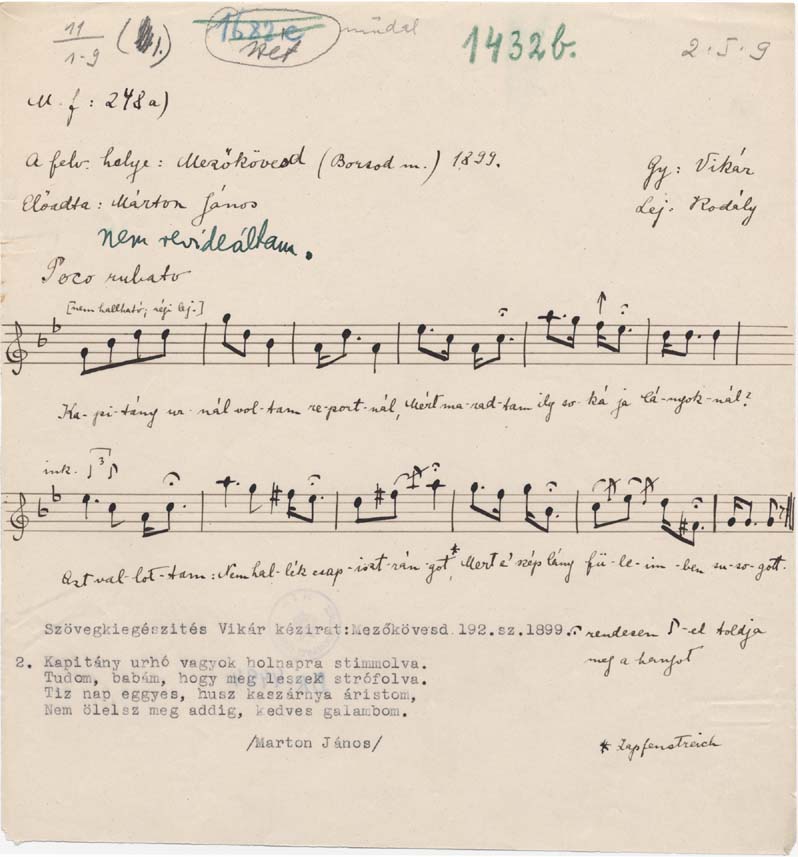 11
1-9
1682 e
műdal
1432b.
2.5.9
M. f: 248a)
A felv. helye: Mezőkövesd (Borsod m.) 1899.
Gy: Vikár
Előadta: Márton János
Lej. Kodály
nem revideáltam.
Poco rubato
[nem hallható; régi lej.]
Ka-pi-tány ur-nál vol-tam re-port-nál, Mért ma-rad-tam ily so-ká ja lá-nyok-nál?
ink.
3
Azt val-lot-tam: Nem hal-lék csap-iszt-rán-got,* Mert a' szép lány fü-le-im-ben su-so-gott.
Szövegkiegészités Vikár kézirat:Mezőkövesd.192.sz.1899.
rendesen ♪-el toldja
meg a hangot
2. Kapitány urhó vagyok holnapra stimmolva.
Tudom, babám, hogy meg leszek strófolva.
Tiz nap eggyes, husz kaszárnya áristom,
Nem ölelsz meg addig, kedves galambom.
/Marton János/
* Zapfenstreich